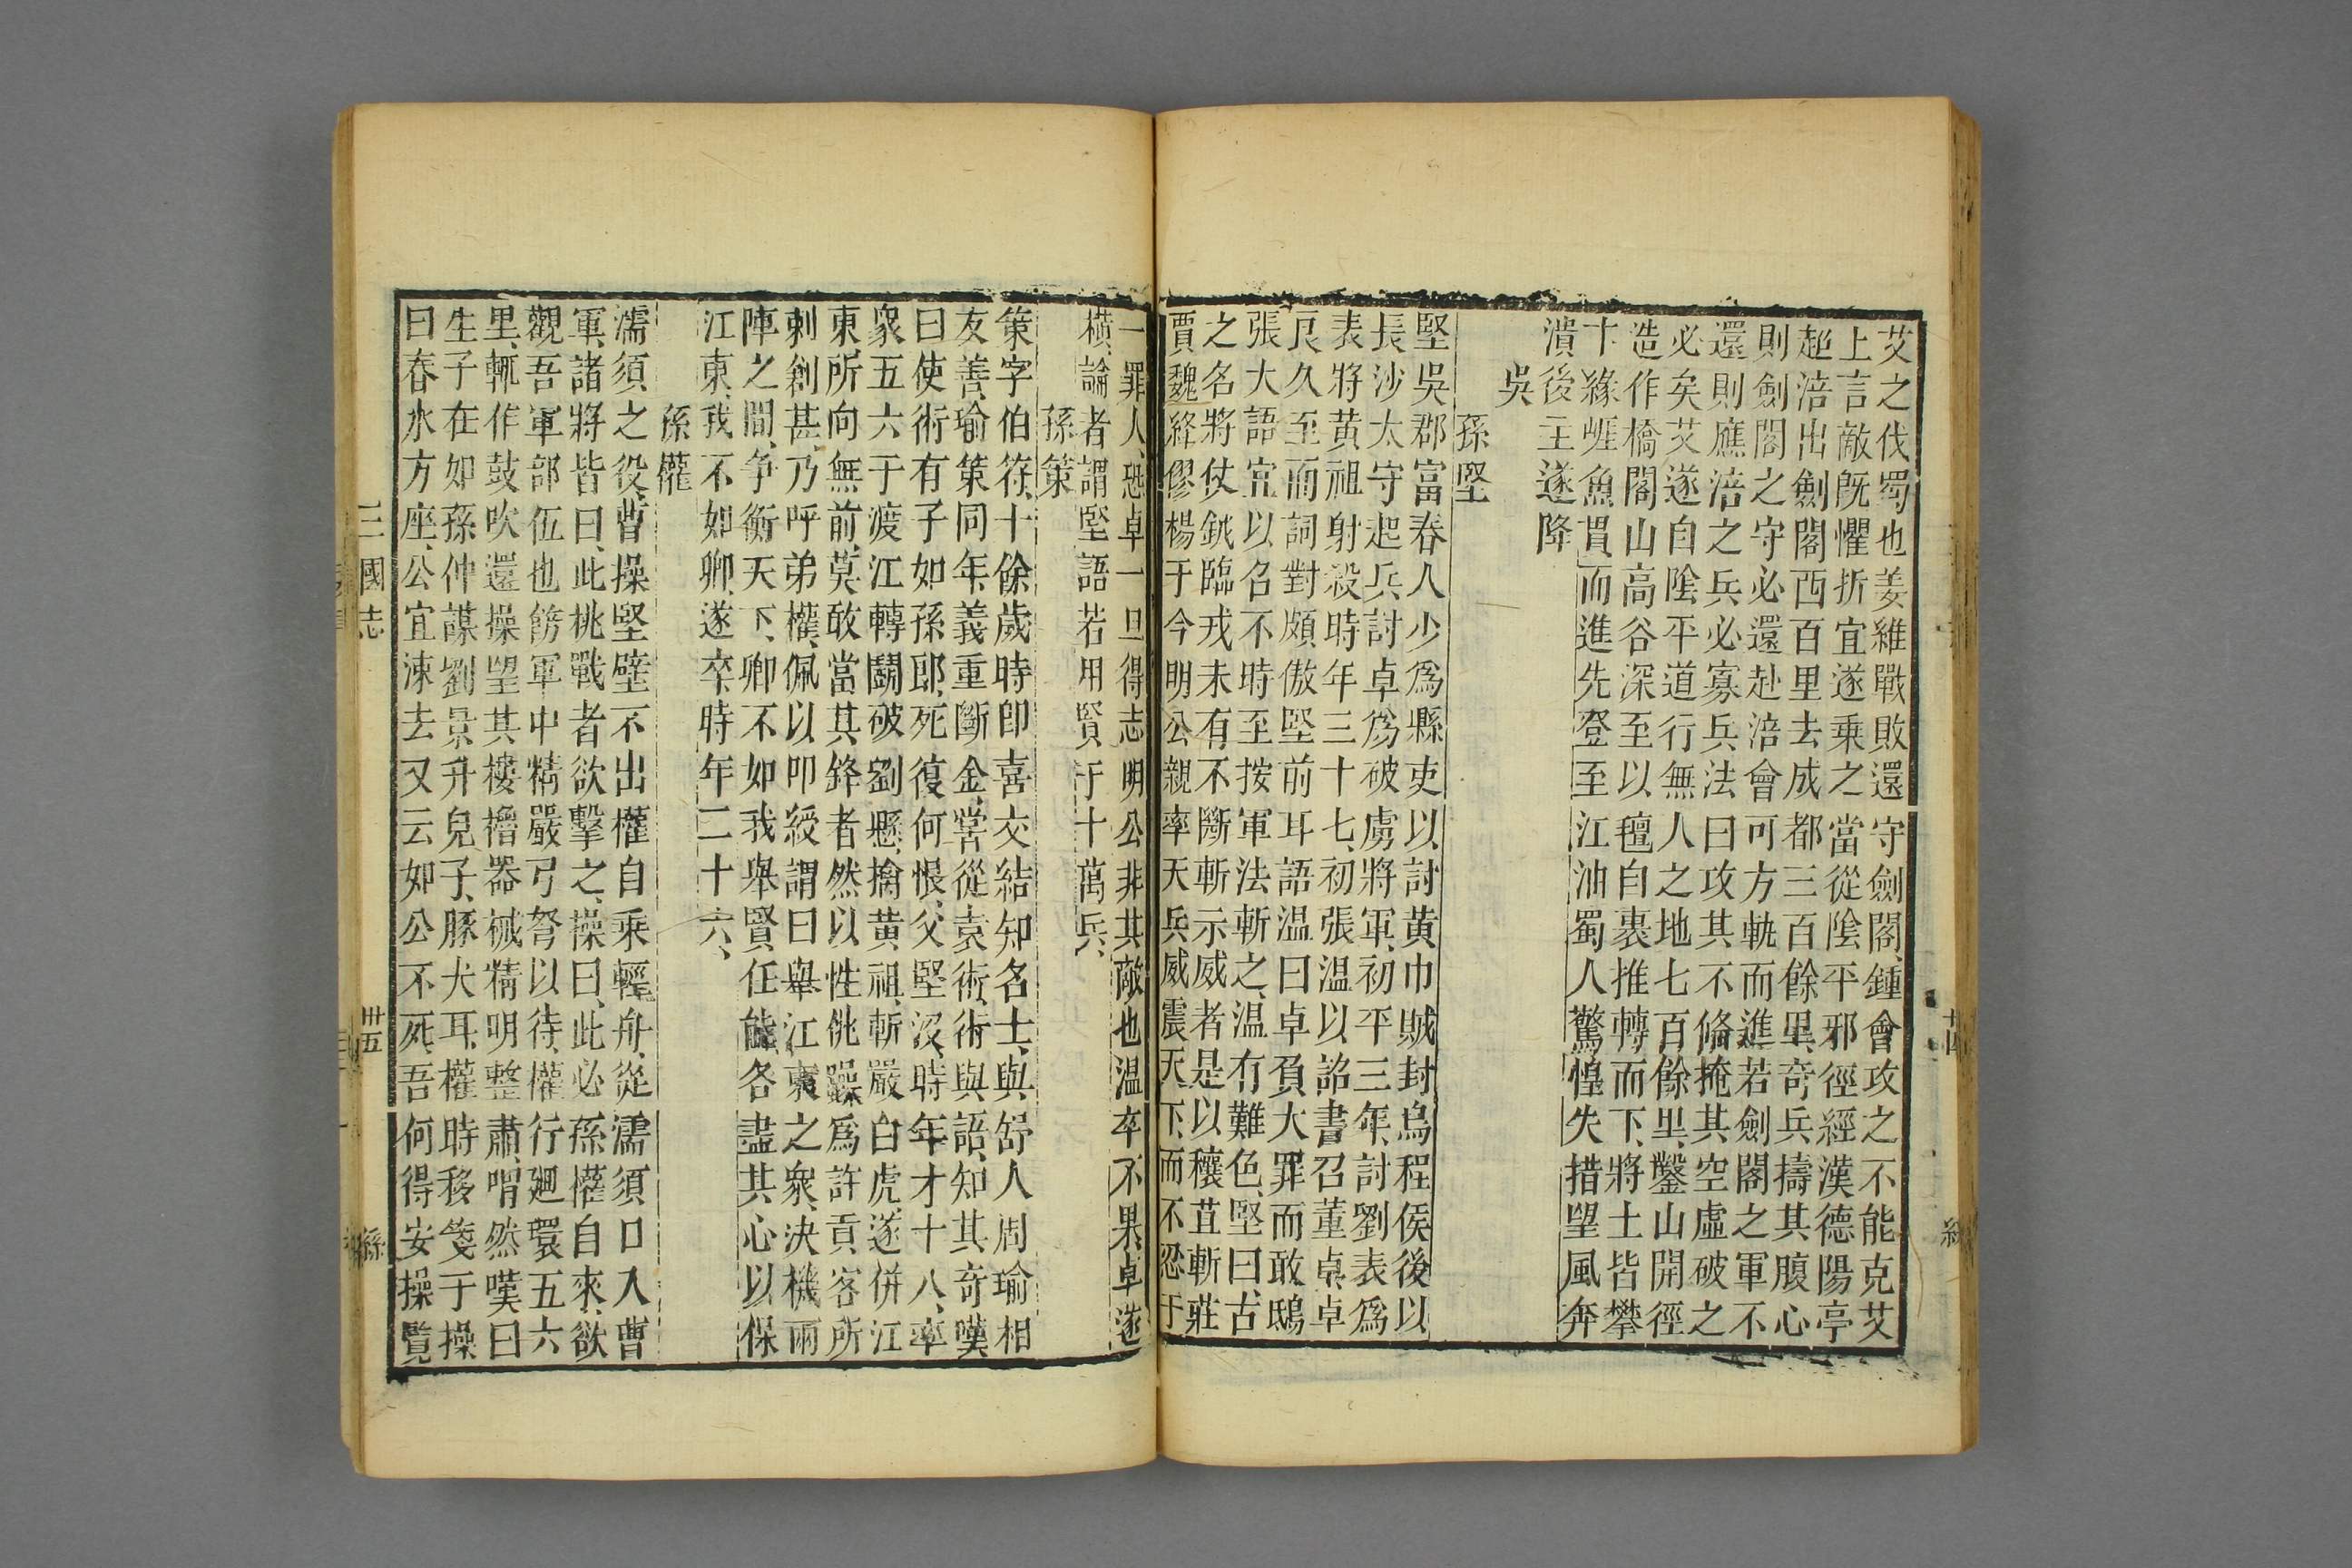 艾之伐蜀也姜維戰敗還守劍閣鍾會攻之不能克艾
上言敵既懼折宜遂乘之當從陰平邪徑經漢德陽亭
超涪出劍閣西百里去成都三百餘里奇兵擣其腹心
則劍閣之守必還赴涪會可方軌而進若劍閣之軍不
還則應涪之兵必寡兵法曰攻其不俻掩其空虛破之
必矣艾遂自陰平道行無人之地七百餘里鑿山開徑
造作橋閣山高谷深至以氊自裹推轉而下將士皆攀
卞緣崕魚貫而進先登至江油蜀人驚惶失措望風奔
潰後主遂降
吳
孫堅
堅吳郡富春人少爲縣吏以討黄巾賊封烏程侯後以
長沙太守起兵討卓爲破虜將軍初平三年討劉表爲
表將黄祖射殺時年三十七初張温以詔書召董卓卓
良久至而詞對頗傲堅前耳語温曰卓負大罪而敢鴟
張大語宜以召不時至按軍法斬之温有難色堅曰古
之名將仗鉞臨戎未有不斷斬示威者是以穰苴斬莊
賈魏絳僇楊于今明公親率天兵威震天下而不忍于
一罪人恐卓一旦得志明公非其敵也温卒不果卓遂
横論者謂堅語若用賢于十萬兵
孫策
策字伯符十餘歲時卽喜交結知名士與舒人周瑜相
友善瑜策同年義重斷金嘗從袁術術與語知其奇嘆
曰使術有子如孫郎死復何恨父堅沒時年才十八率
衆五六于渡江轉鬬破劉懸擒黄祖斬嚴白虎遂併江
東所向無前莫敢當其鋒者然以性佻躁爲許貢客所
刺創甚乃呼弟權佩以印綬謂曰舉江東之衆決機兩
陣之間争衡天下卿不如我舉賢任能各盡其心以保
江東我不如卿遂卒時年二十六
孫權
濡須之役曹操堅壁不出權自乘輕舟從濡須口入曹
軍諸將皆曰此挑戰者欲擊之操曰此必孫權自來欲
觀吾軍部伍也飭軍中精嚴弓弩以待權行廻環五六
里輒作鼓吹還操望其樓櫓器械精明整肅喟然嘆曰
生子在如孫仲謀劉景升兒子豚犬耳權時移箋于操
曰春水方座公宜涑去又云如公不死吾何得安操覧
三國志
卅五